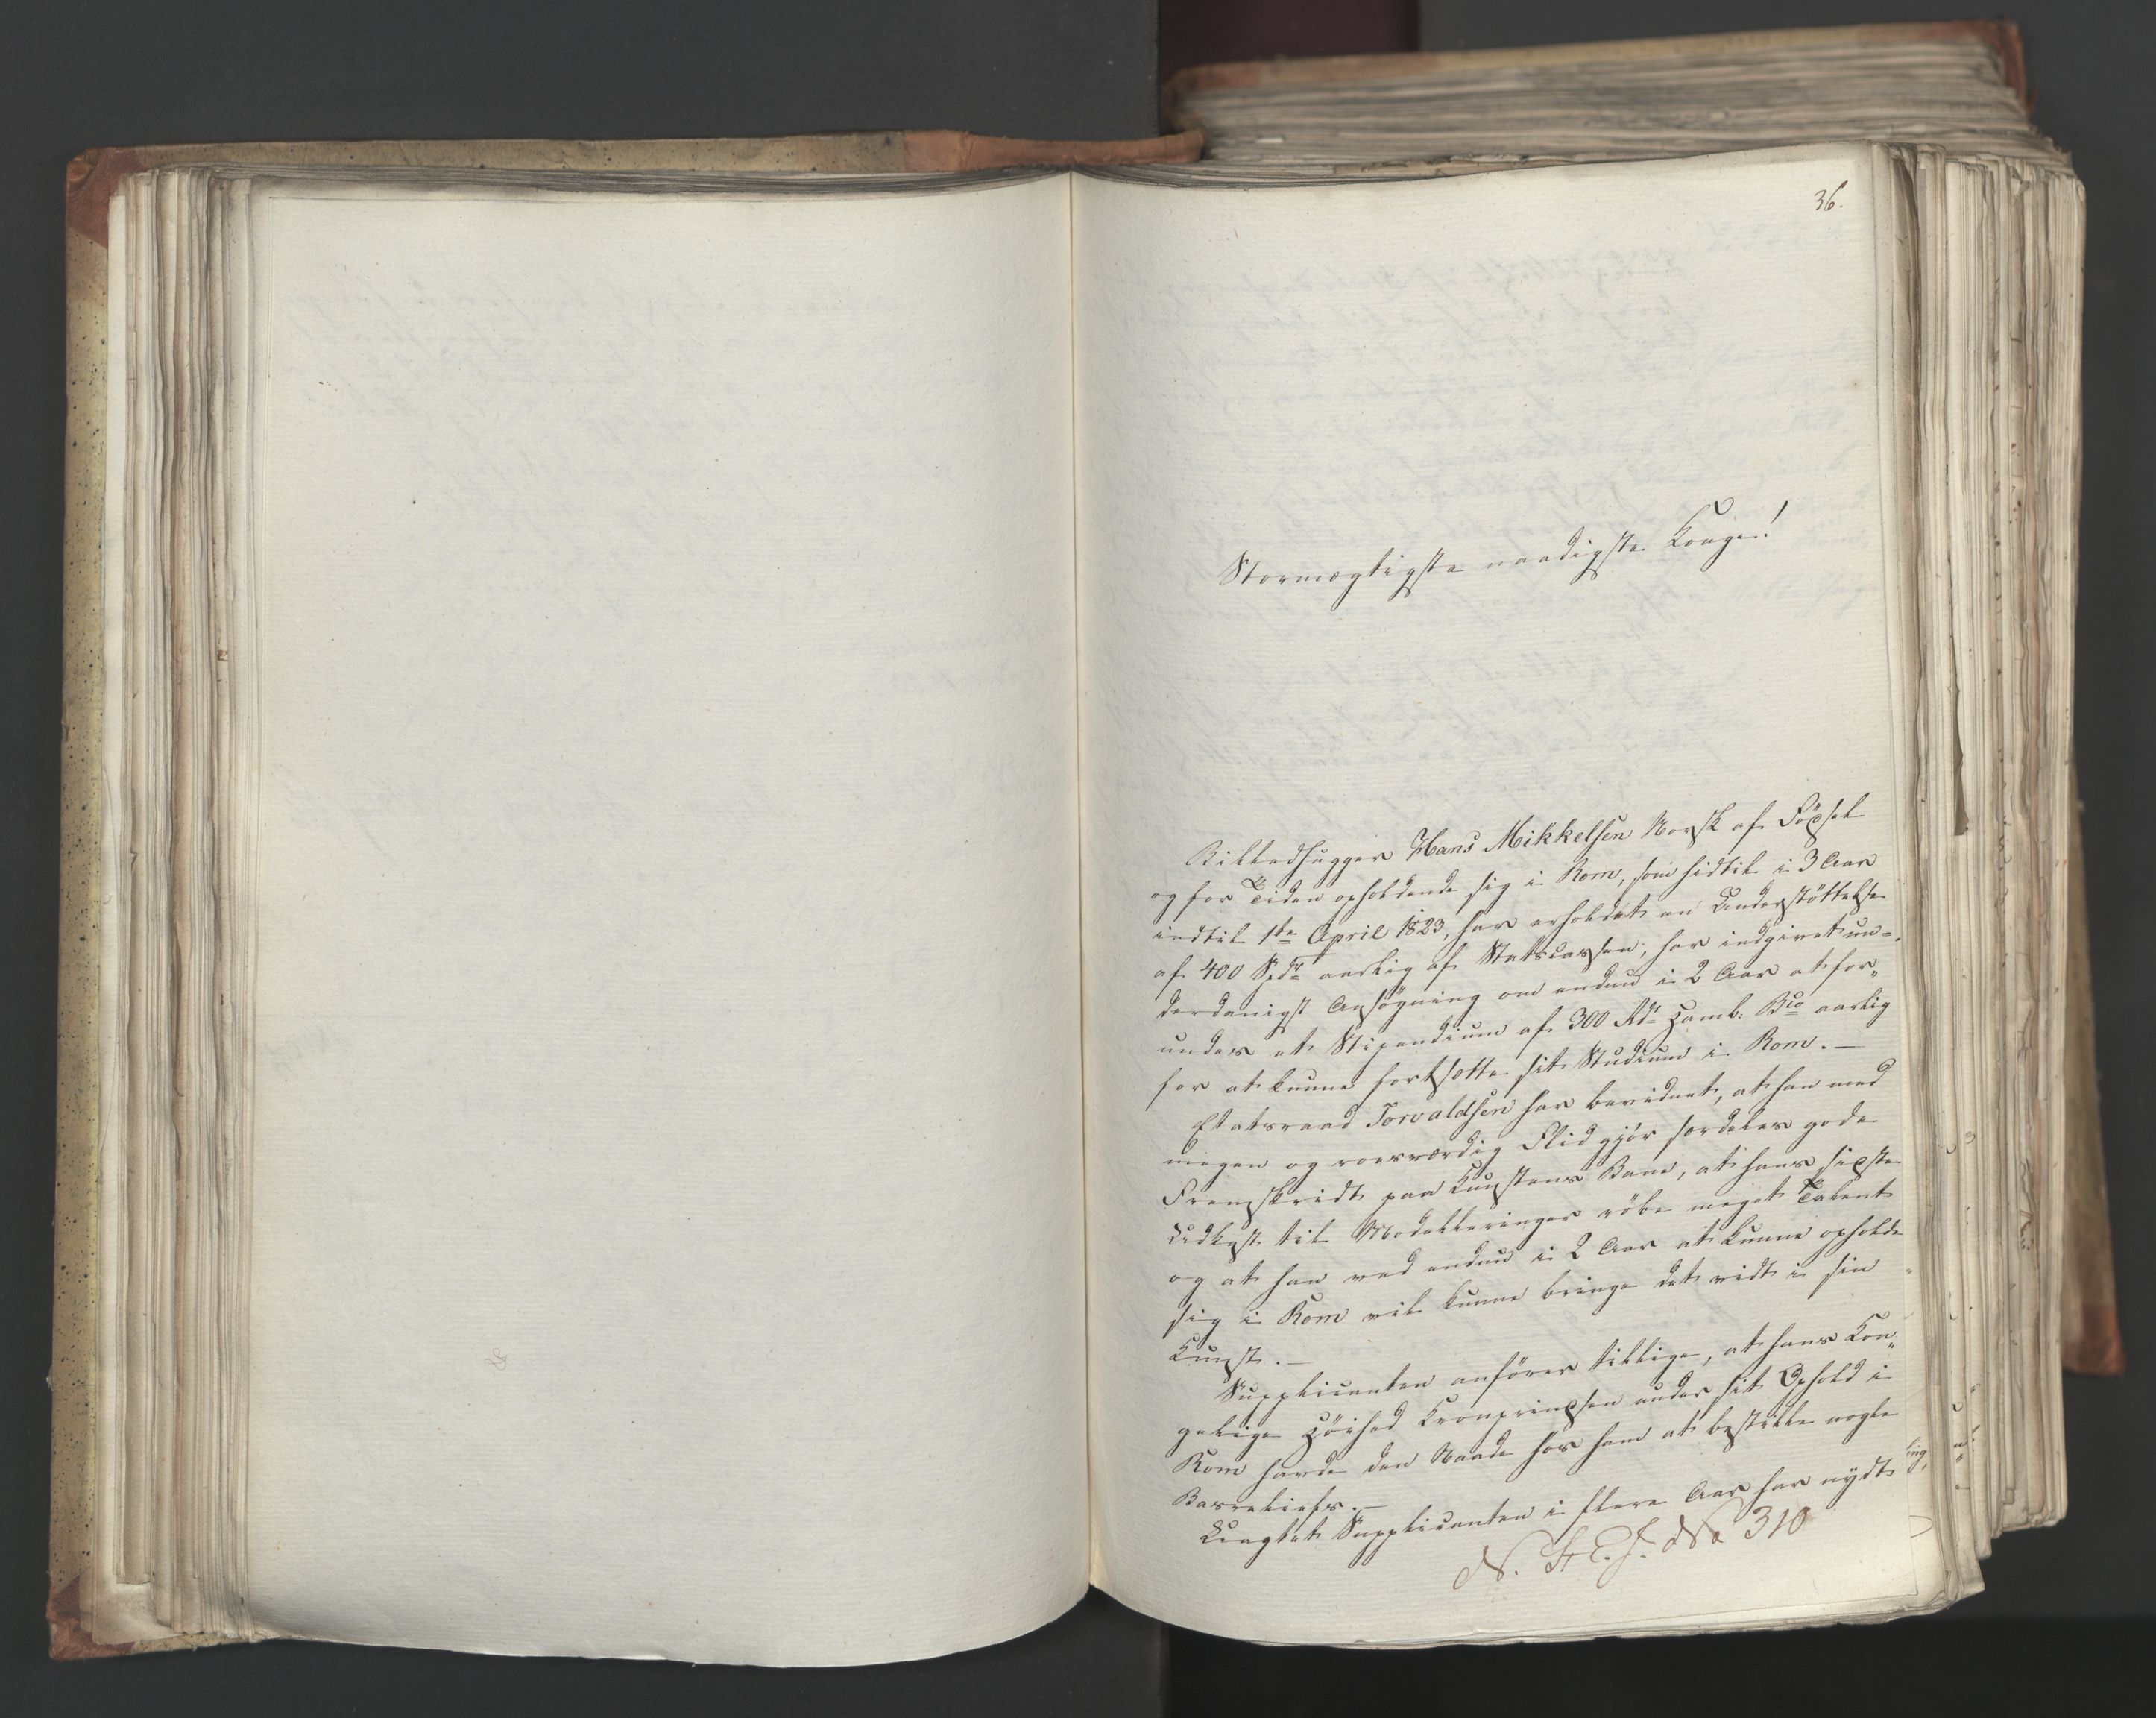 36.
Stormægtigste naadigste Konge!
Billedhugger Hans Mikkelsen Norsk af Födsel
og for Tiden opholdende sig i Rom, som hidtil i 3 Aar
indtil 1te April 1823, har erholdet en Understöttelse
af 400 Spdr aarlig af Statscassen, har indgivet un=
derdanigst Ansögning om endnu i 2 Aar at for„
undes et Stipendium af 300 Rdr Hamb: Bco aarlig
for at kunne fortsætte sit Studium i Rom. —
Etatsraad Torvaldsen har bevidnet, at han med
megen og roesværdig Flid gjör særdeles gode
Fremskridt paa Kunstens Bane, at hans sidste
Udkast til Modelleringer röbe meget Talent
og at han ved endnu i 2 Aar at kunne opholde
sig i Rom vil kunne bringe det vidt i sin
Kunst. —
Supplicanten anförer tillige, at hans Kon„
gelige Höihed Kronprindsen under sit Ophold i
Rom havde den Naade hos ham at bestille nogle
Basreliefs. —
Uagtet Supplicanten i flere Aar har nydt
N. St. E. J. No 310